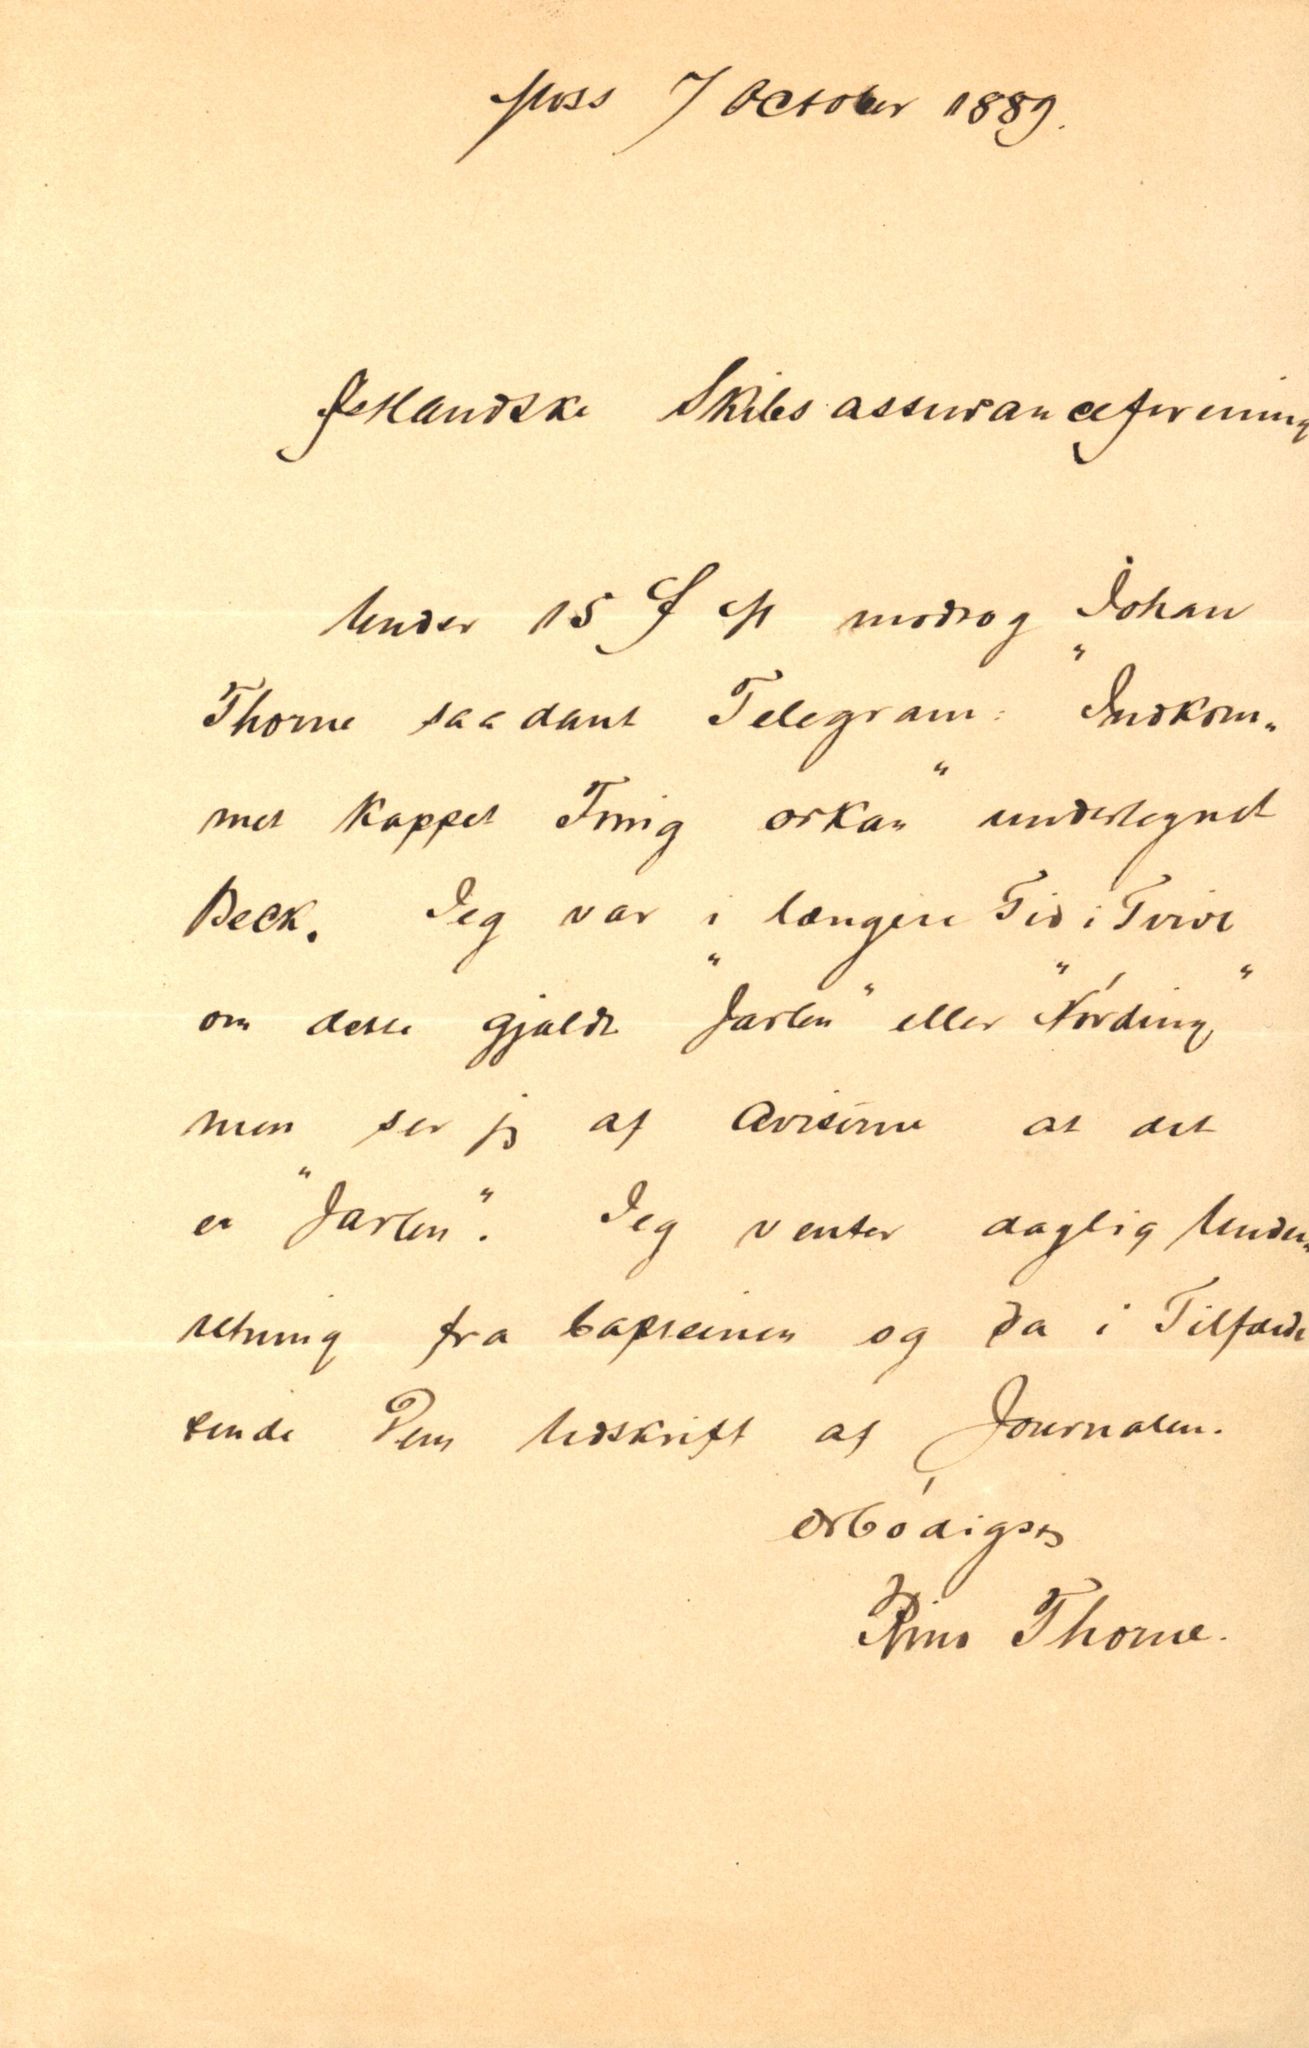 Moss 7 October 1889.
Østlandske Skibsassuranceforening
Under 15 f M modtog Johan
Thorne saadant Telegram: "Indkom„
met kappet Tririg orkan" undertegnet
Beck. Jeg var i længere Tid i Tvivl
om dette gjaldt "Jarlen" eller "Nórding"
men ser jg af Aviserne at det
er "Jarlen". Jeg venter daglig Under„
retning fra Capteinen og da i Tilfælde
sende Dem Udskrift af Journalen.
Ærbódigst
Thorne.